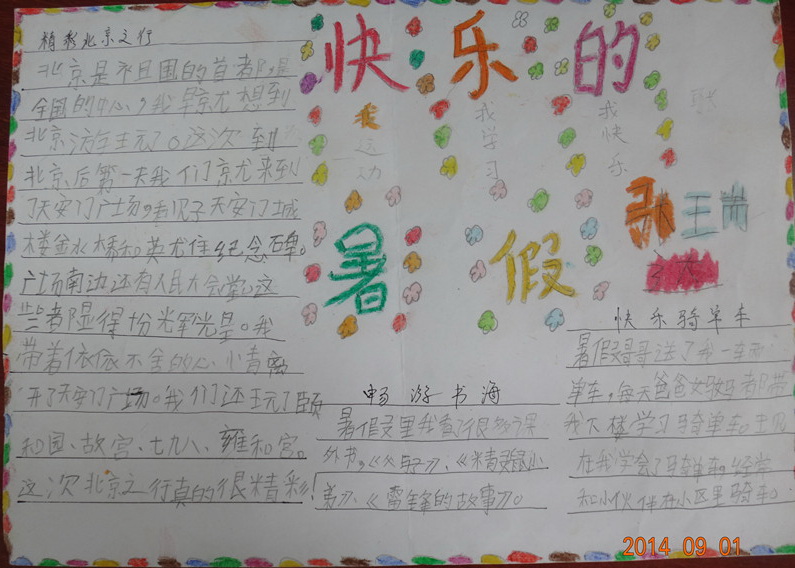 快乐的
暑假
我运动
我学习
我快乐
精彩北京之行
北京是祖国的首都,是
全国的中心,我早就想到
北京游玩了。这次到
北京后第一天我们就来到
了天安门广场,看见了天安门城
楼金水桥和英雄纪念碑。
广场南边还有人民大会堂。这
些都显得十分光辉。我
带着依依不舍的心情离
开了天安门广场。我们还玩了颐
和园、故宫、七九八、雍和宫。
这次北京之行真的很精彩!
畅游书海
暑假里我看了很多课
外书,《父与子》、《精灵鼠小
弟》、《雷锋的故事》。
快乐骑单车
暑假哥哥送了我一车
单车,每天爸爸妈妈都带
我下楼学习骑单车。现
在我学会了骑单车,经常
和小伙伴在小区里骑车。
2014 09 01